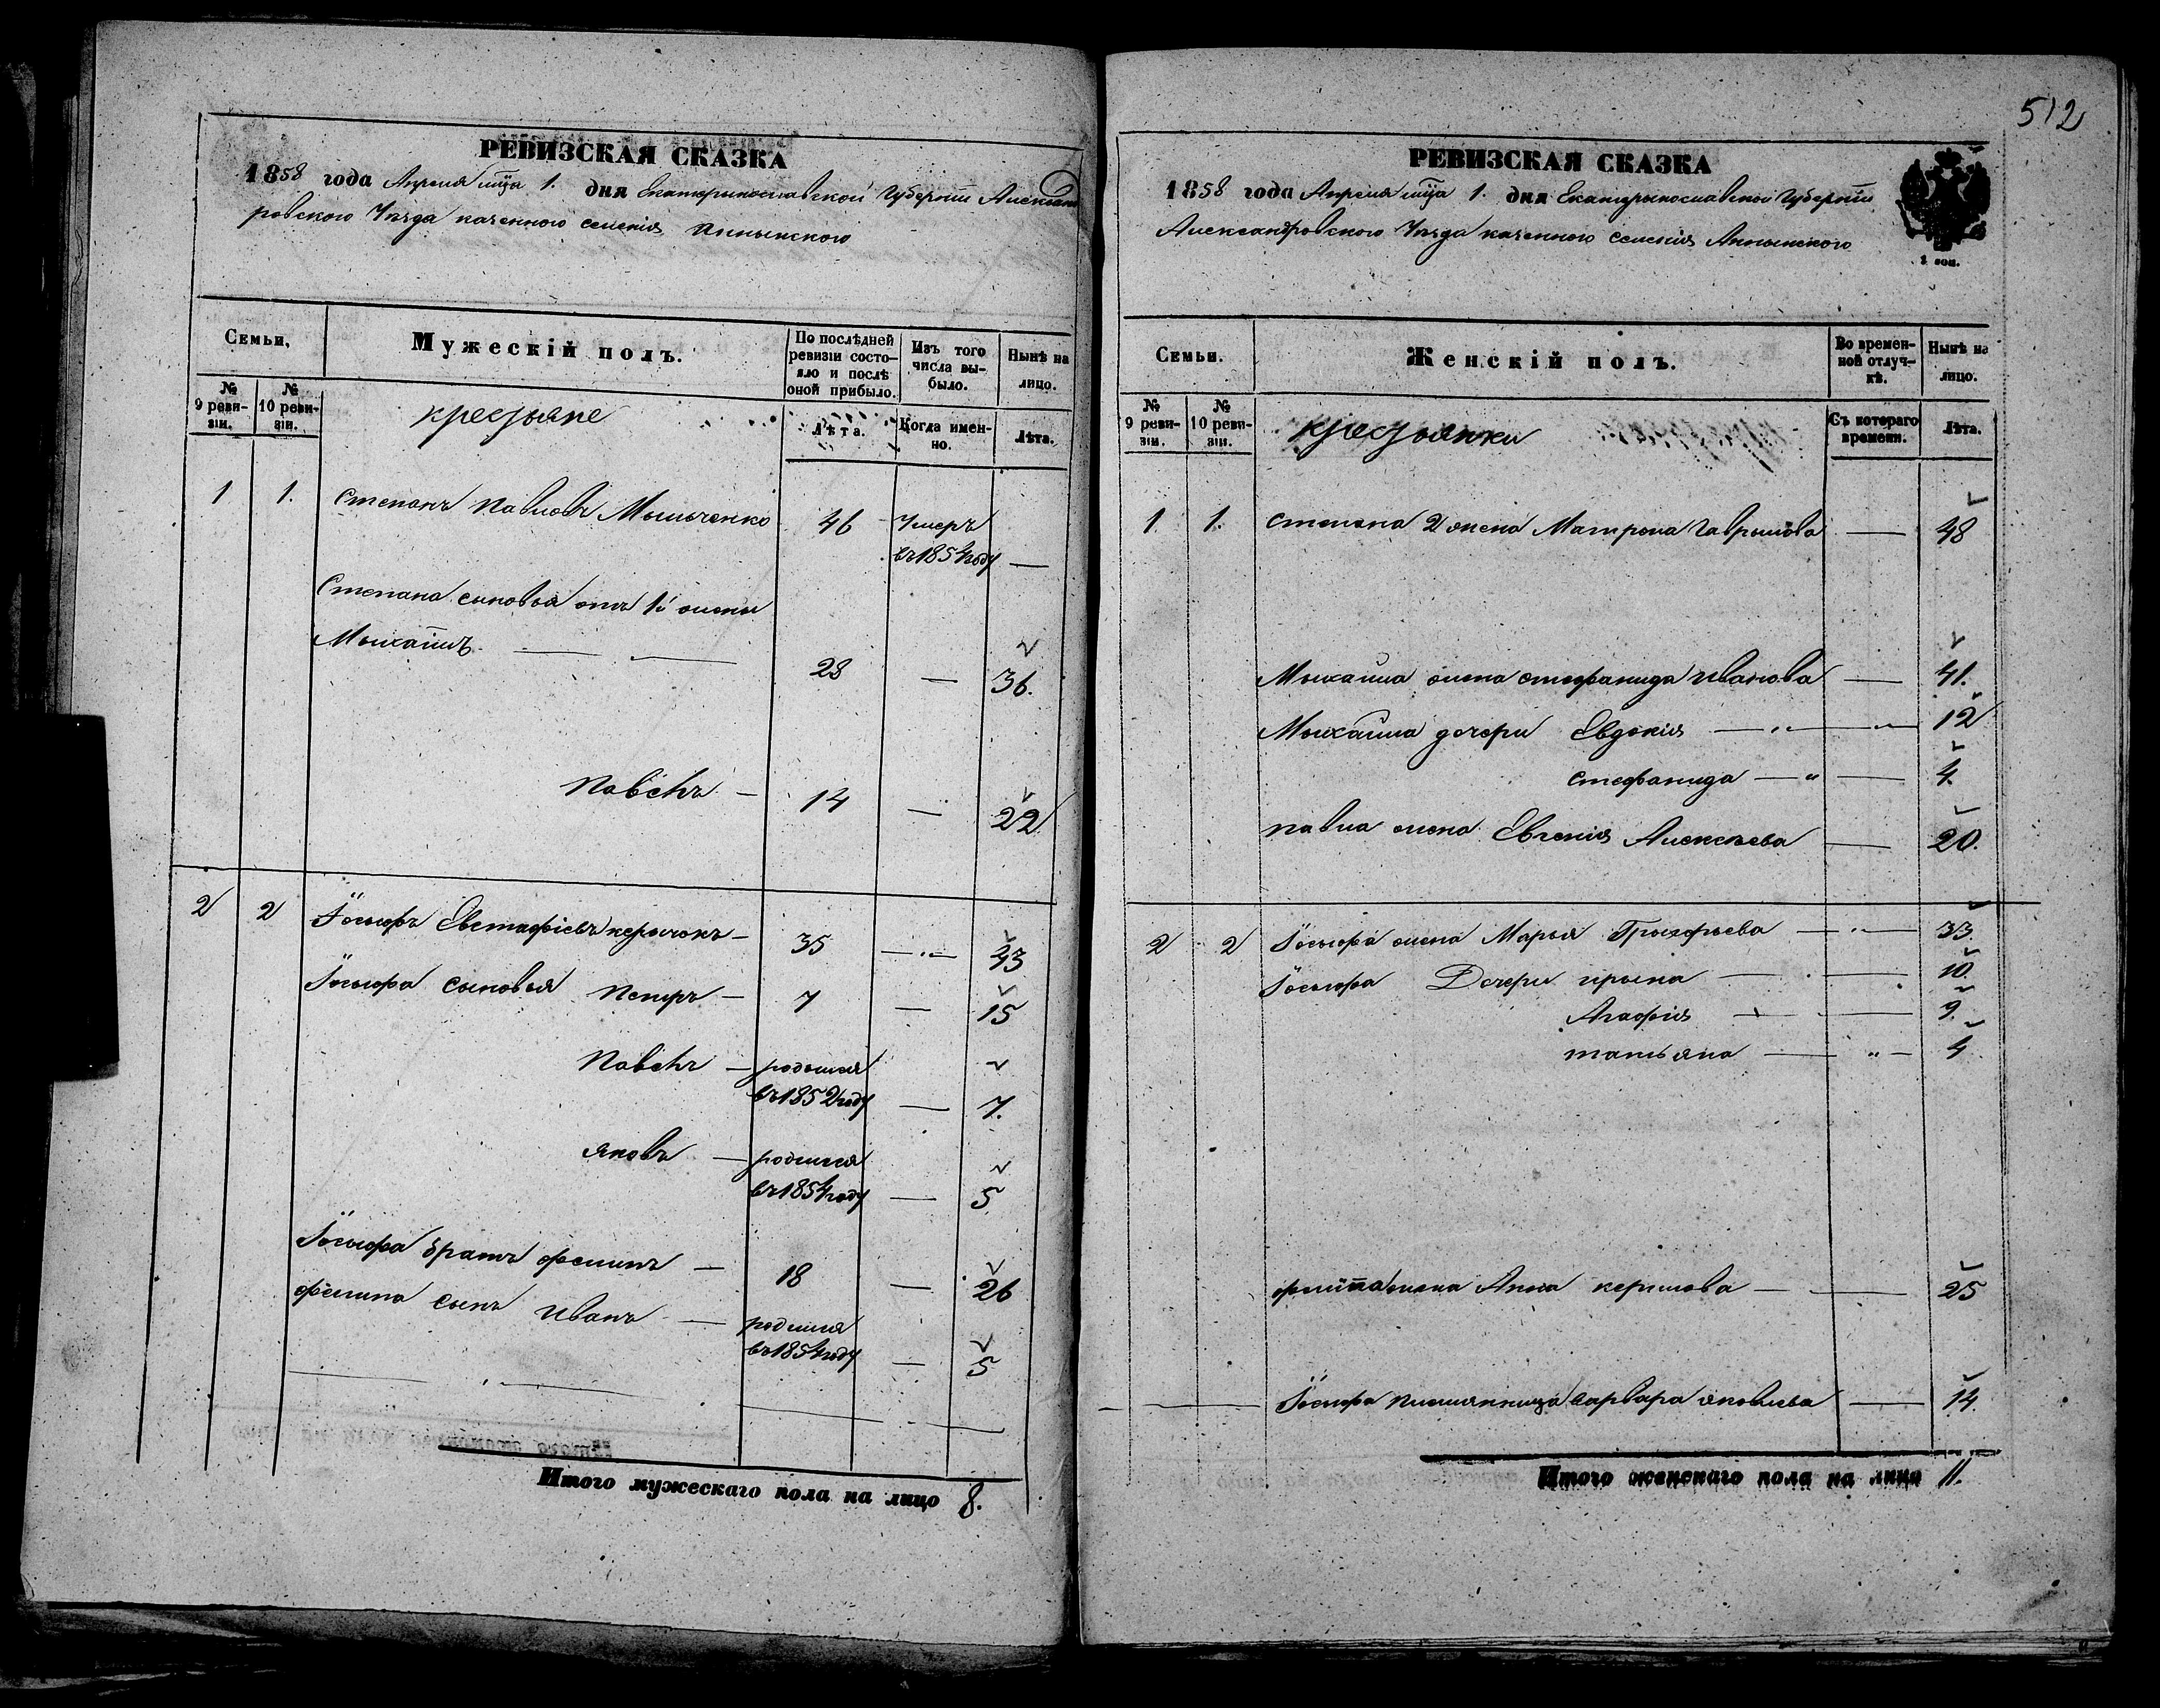 РЕВИЗСКАЯ СКАЗКА
1858 года Апреля мца 1. дня Екатерынославской Губернiи Александ
ровского Уезда казенного селенiя Аннынского
Семьи,
Мужескій полъ.
По послѣдней ревизіи состояло и послѣ оной прибыло.
Изъ того числа выбыло.
Нынѣ на лицо.
№ 9 ревизіи.
№ 10 ревизіи.
крестьяне
Лѣта.
Когда именно.
Лѣта.
1 1. Степанъ Павловъ Мыльченко 46 Умеръ
въ 1854 году —
Степана сыновья отъ 1й жены
Мыхаилъ — — 28 — 36.
Павелъ — 14 — 22
2 2 Іосыфъ Евстафіевъ — 35 — 43
Іосыфа сыновья Петръ — 7 — 15
Павелъ — родился
въ 1852 году — 7.
Яковъ — родился
въ 1854 году — 5
Іосыфа братъ Филипъ — 18 — 26
Филипа сынъ Иванъ — родился
въ 1854 году — 5
Итого мужескаго пола на лицо 8.
512
РЕВИЗСКАЯ СКАЗКА
1858 года Апреля мца 1. дня Екатерынославской Губернiи
Александровского Уезда казенного селенiя Аннынского
Семьи.
Женскій полъ.
Во временной отлучкѣ.
Нынѣ на лицо.
№ 9 ревизіи.
№ 10 ревизіи.
крестьянки
Съ котораго времени.
Лѣта.
1. 1. Степана 2 жена Матрона Гаврылова — 48
Мыхаила жена Стефанида Иванова — 41.
Мыхаила дочери Евдокія — 12
Стефанида — 4.
Павла жена Евгенія Алексѣева — 20.
2 2 Іосыфа жена Марья — 33.
Іосыфа Дочери Ирына — 10.
Агафія — 9.
Татьяна — 4
Филипа жена Анна Керилова — 25
Іосыфа племянница Варвара Яковлева — 14.
Итого женскаго пола на лицо 11.